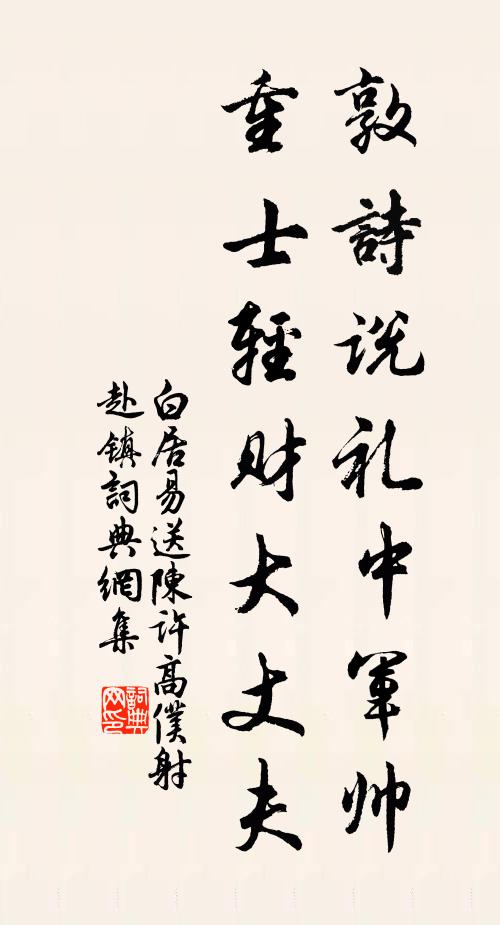 敦詩説礼中軍帅
重士輕财大丈夫
白居易送陳許高僕射
赴鎮詞典網集
詞典
网印